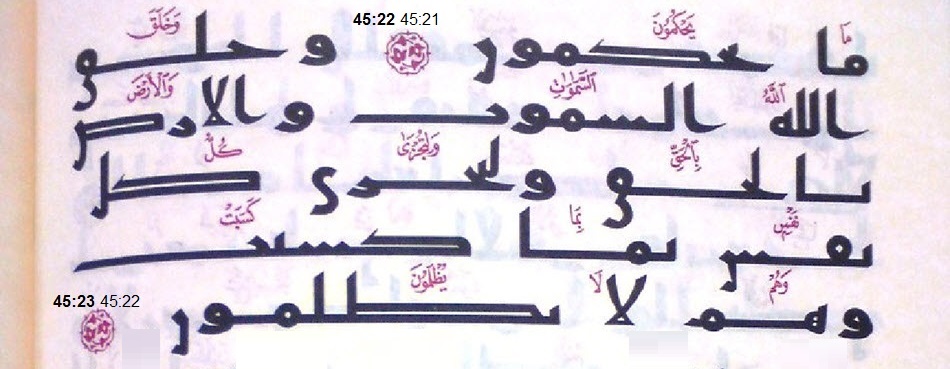 45:22 45:21
ما يحكمون وخلق
مَا يَحْكُمُونَ وَخَلَقَ
الله السموت والارض
ٱللَّهُ ٱلسَّمَٰوَٰتِ وَٱلْأَرْضَ
بالحق ولتجزى كل
بِٱلْحَقِّ وَلِتُجْزَىٰ كُلُّ
نفس بما كسبت
نَفْسٍ بِمَا كَسَبَتْ
وهم لا يظلمون
وَهُمْ لَا يُظْلَمُونَ
45:23 45:22